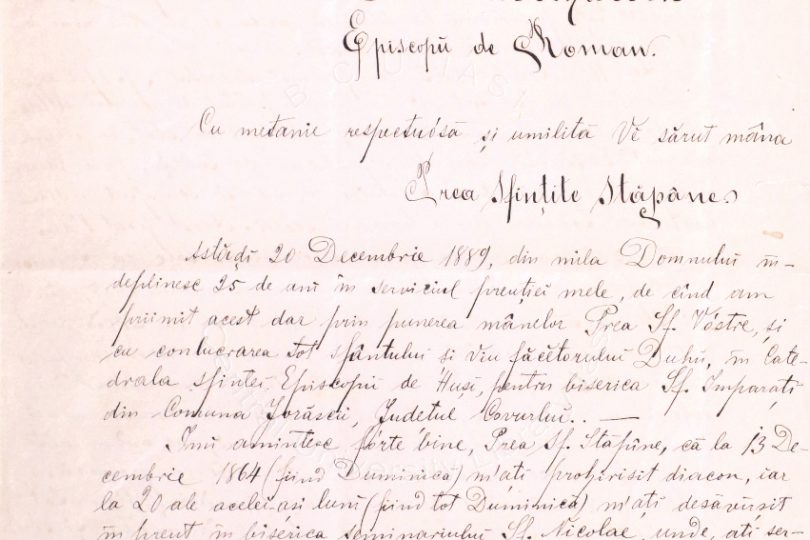 Episcopŭ de Roman.
Cu metanie respectuósă și umilită Vĕ sărut mâna
Prea Sfințite Stăpâne
Astădi 20 Decembrie 1889, din mila Domnului în-
deplinesc 25 de ani în serviciul preuției mele, de cînd am
priimit acest dar prin punerea mânelor Prea Sf. Vóstre, și
cu conlucrarea tot sfântului si viu făcĕtorului Duhŭ, în Cate-
drala sfintei Episcopii de Huși, pentru biserica Sf. Imparați
din Comuna Jorăscii, Judetul Covurlui. . —
Imĭ amintesc forte bine, Prea Sf. Stăpûne, că la 13 De-
cembrie 1864 (fiind Duminică) m'ați prohirisit diacon, iar
la 20 ale acelei-asi luni (fiind tot Duminică) m'ați desăvirșit
în preut în biserica seminariului Sf. Nicolae, unde, ati ser-